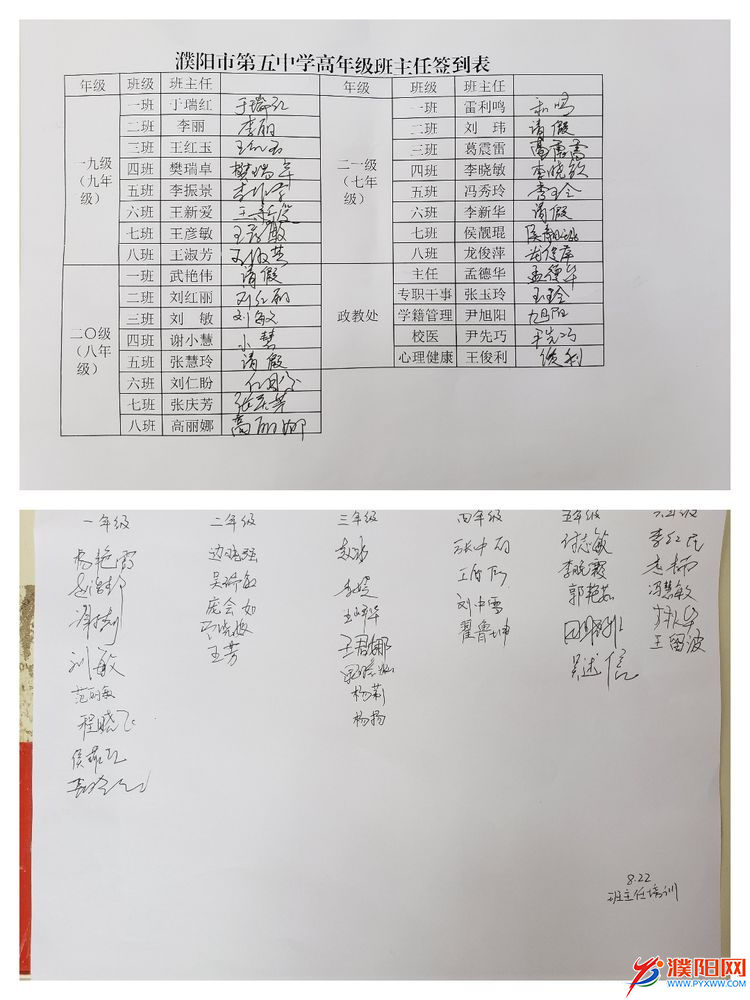 濮阳市第五中学高年级班主任签到表
年级 班级 班主任 年级 班级 班主任
一九级（九年级）
一班 于瑞红 于瑞红
二班 李丽 李丽
三班 王红玉 王红玉
四班 樊瑞卓 樊瑞卓
五班 李振景
六班 王新爱
七班 王彦敏 王彦敏
八班 王淑芳
二〇级（八年级）
一班 武艳伟 请假
二班 刘红丽 刘红丽
三班 刘 敏 刘敏
四班 谢小慧 小慧
五班 张慧玲 请假
六班 刘仁盼
七班 张庆芳 张庆芳
八班 高丽娜 高丽娜
二一级（七年级）
一班 雷利鸣 利鸣
二班 刘 玮 请假
三班 葛震雷 葛震雷
四班 李晓敏 李晓敏
五班 冯秀玲
六班 李新华 请假
七班 侯靓琨 侯靓琨
八班 龙俊萍 龙俊萍
政教处
主任 孟德华 孟德华
专职干事 张玉玲 玉玲
学籍管理 尹旭阳 旭阳
校医 尹先巧 尹先巧
心理健康 王俊利 俊利
一年级
杨艳雪
刘敏
范丽敏
程晓飞
二年级
庞会如
王芳
三年级
王君娜
杨莉
杨扬
四年级
张中丽
刘中雪
翟鲁坤
五年级
付志敏
李晓霞
郭艳茹
吴述信
李红民
冯慧敏
王留波
8.22
班主任培训
濮阳网
WWW.PYXWW.COM